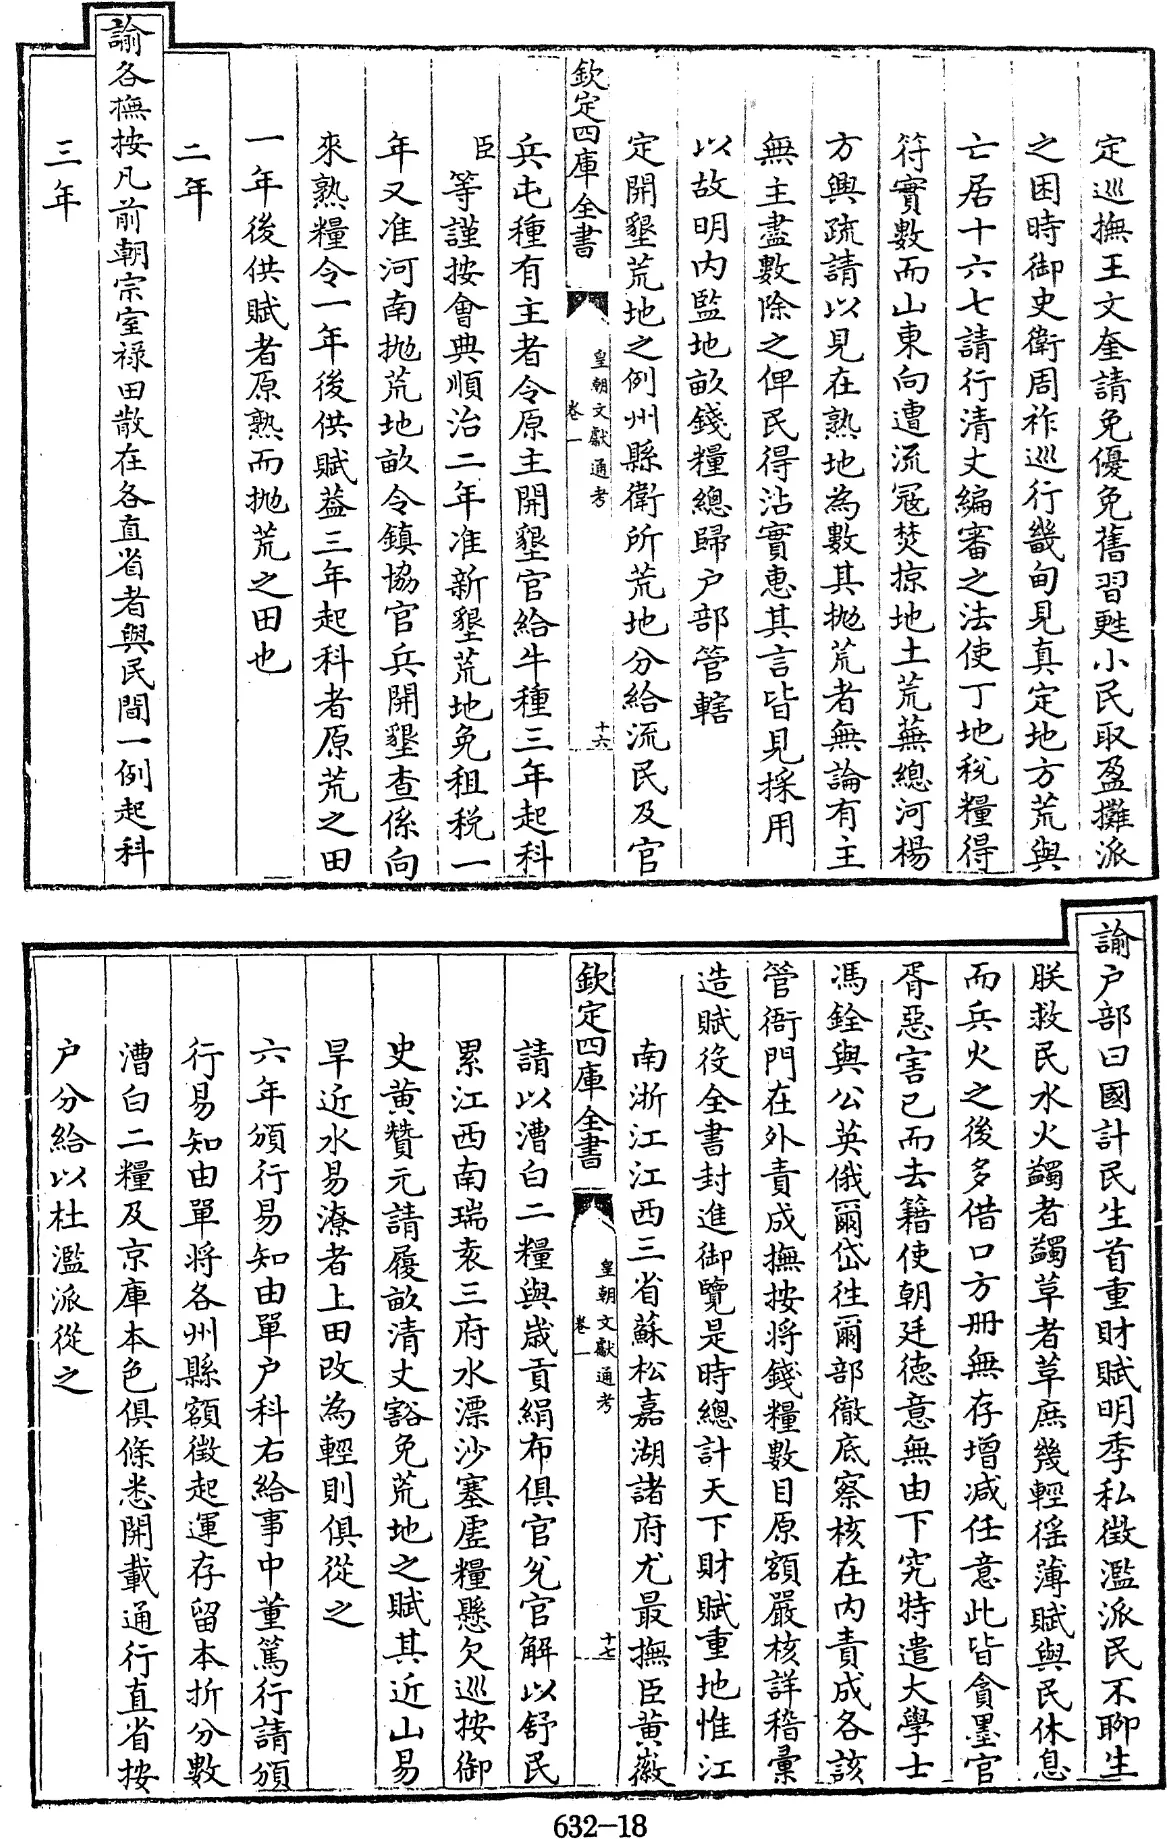 定巡撫王文奎請免優免舊習甦小民取盈攤派
之困時御史衛周祚巡行畿甸見真定地方荒與
亡居十六七請行清丈編審之法使丁地稅糧得
符實數而山東向遭流冦焚掠地土荒蕪總河楊
方興疏請以見在熟地為數其抛荒者無論有主
無主盡數除之俾民得沾實惠其言皆見採用
以故明内監地畝錢糧總歸户部管轄
定開墾荒地之例州縣衛所荒地分給流民及官
欽定四庫全書
皇朝文獻通考
卷一
十六
兵屯種有主者令原主開墾官給牛種三年起科
臣等謹按會典順治二年准新墾荒地免租稅一
年又准河南抛荒地畝令鎮協官兵開墾查係向
來熟糧令一年後供賦葢三年起科者原荒之田
一年後供賦者原熟而抛荒之田也
二年
諭各撫按凡前朝宗室祿田散在各直省者與民間一例起科
三年
諭户部曰國計民生首重財賦明季私徵濫派民不聊生
朕救民水火蠲者蠲革者革庶幾輕徭薄賦與民休息
而兵火之後多借口方册無存增减任意此皆貪墨官
胥惡害已而去籍使朝廷德意無由下究特遣大學士
馮銓與公英俄爾岱徃爾部徹底察核在内責成各該
管衙門在外責成撫按將錢糧數目原額嚴核詳稽彙
造賦役全書封進御覽是時總計天下財賦重地惟江
南浙江江西三省蘇松嘉湖諸府尤最撫臣黄徽
欽定四庫全書
皇朝文獻通考
卷一
十七
請以漕白二糧與歲貢絹布俱官兊官解以舒民
累江西南瑞袁三府水漂沙塞虛糧懸欠巡按御
史黄贊元請履畝清丈豁免荒地之賦其近山易
旱近水易潦者上田改為輕則俱從之
六年頒行易知由單户科右給事中董篤行請頒
行易知由單將各州縣額徵起運存留本折分數
漕白二糧及京庫本色俱條悉開載通行直省按
户分給以杜濫派從之
632-18